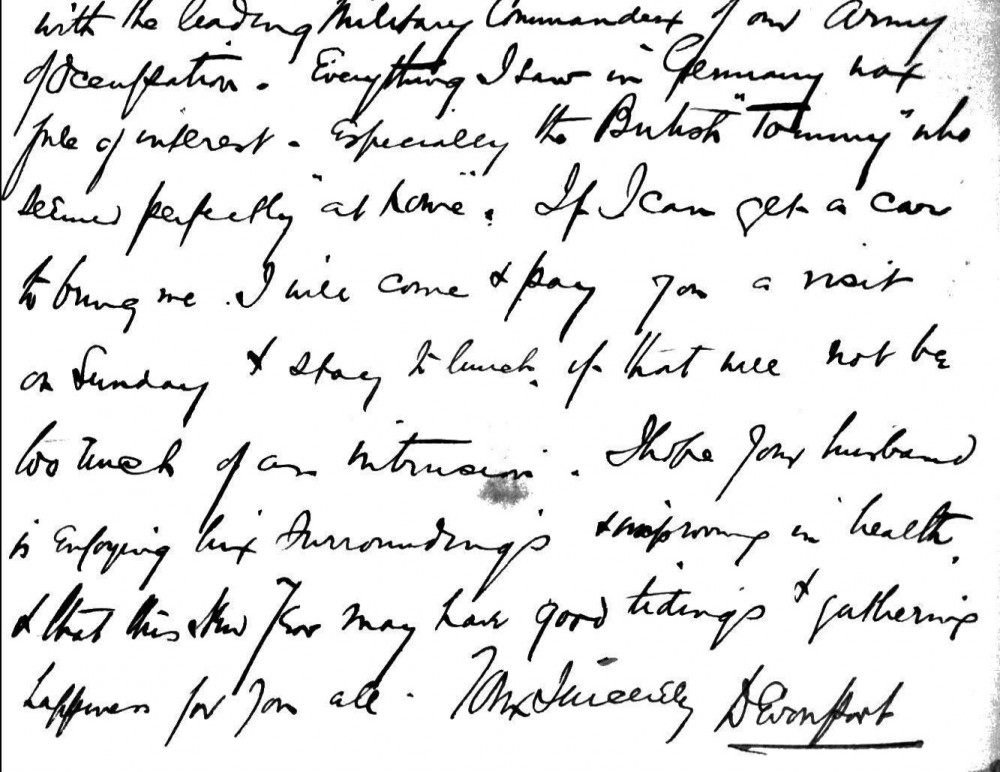 with the leading Military Commanders of our Army
of Occupation. Everything I saw in Germany was
full of interest - Especially the British "Tommy" who
seemed perfectly "at home". If I can get a car
to bring me. I will come & pay you a visit
on Sunday & stay to lunch, if that will not be
too much of an intrusion. I hope your husband
is enjoying his surroundings & improving in health,
& that this New Year may have good tidings & gathering
happiness for you all. Yours Sincerely Devonport